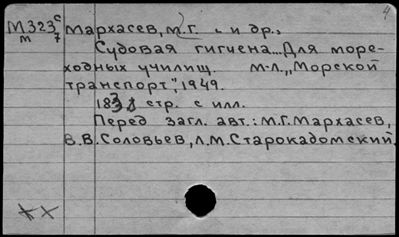 4
М323 с/7 Мархасев, М.Г. и др.,
м
Судовая гигиена... Для море-
ходных училищ. М.-Л., „Морской
транспорт", 1949.
стр. с илл.
Перед загл. авт.: М.Г. Мархасев,
В.В. Соловьев, Л.М. Старокадомский.